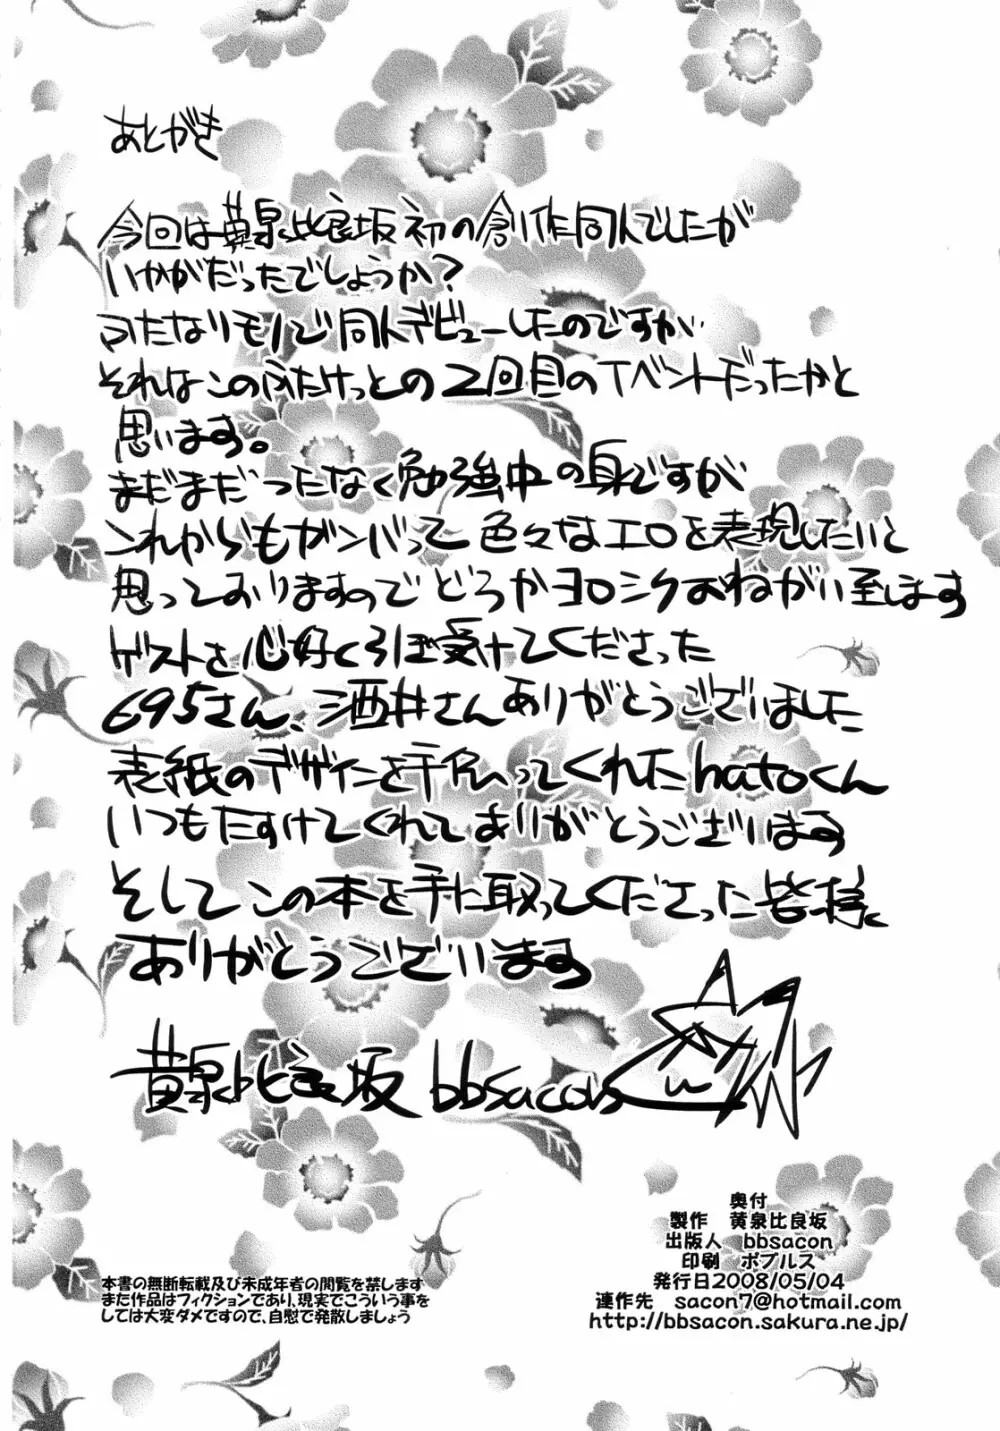 あとがき
今回は黄泉比良坂初の創作同人でしたが
いかがだったでしょうか?
ふたなりモノで同人デビューしたのですが
それはこのふたけっとの2回目のイベントだったかと
思います。
まだまだつたなく勉強中の身ですが
これからもガンバって色々なエロを表現したいと
思っておりますのでどうかヨロシクおねがい至します
ゲストを心好くひき受けてくださった
695さん、酒井さんありがとうございました
表紙のデザインを手伝ってくれたhatoくん
いつもたすけてくれてありがとうございます
そしてこの本を手に取ってくださった皆様に
ありがとうございます
黄泉比良坂 bbsacon
奥付
製作 黄泉比良坂
出版人 bbsacon
印刷 ポプルス
発行日2008/05/04
連作先 sacon7@hotmail.com
http://bbsacon.sakura.ne.jp/
本書の無断転載及び未成年者の閲覧を禁します
また作品はフィクションであり、現実でこういう事を
しては大変ダメですので、自慰で発散しましょう